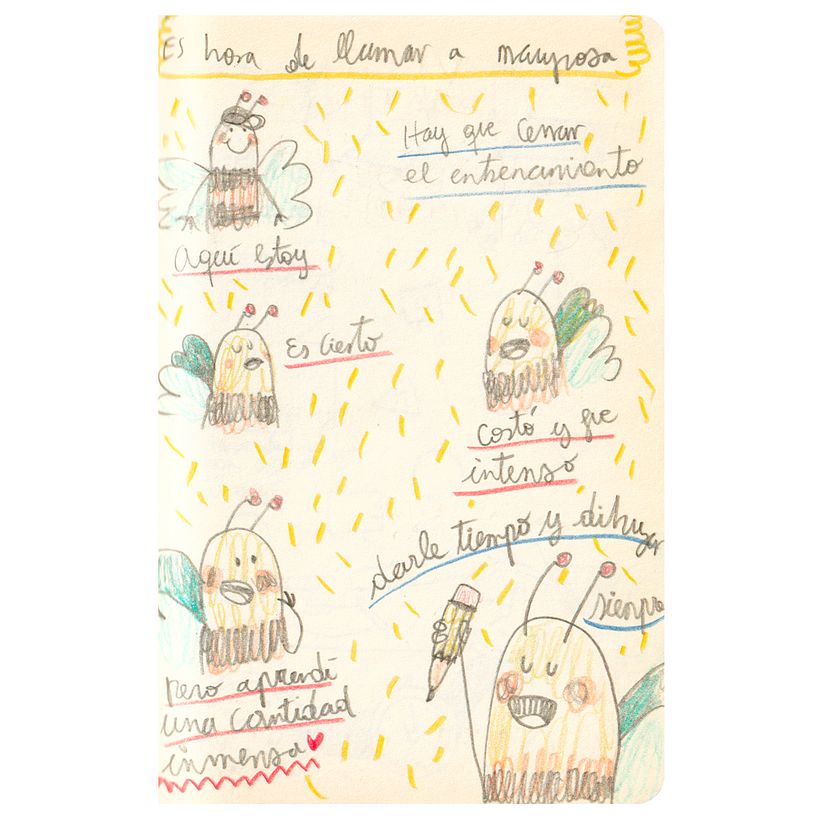 Es hora de llamar a mariposa
Hay que cerrar
el entrenamiento
Aquí estoy
Es cierto
costó y que
intenso
darle tiempo y dibujar
siempre
pero aprendí
una cantidad
inmensa